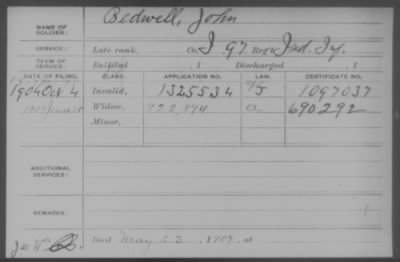 NAME OF SOLDIER: Bedwell, John
SERVICE: Late rank, Co. I 97 Reg't Ind. Inf.
TERM OF SERVICE: Enlisted , 1 Discharged , 1
DATE OF FILING. CLASS. APPLICATION NO. LAW. CERTIFICATE NO.
1904 Oct 4 Invalid, 1325534 J 1097037
1909 Widow, 922,894 a 690292
Minor,
ADDITIONAL SERVICES:
REMARKS:
Died May 23, 1909, at